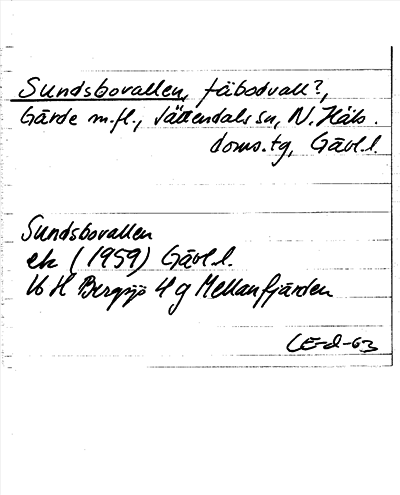 Sundsbovallen, fäbodvall?,
Gärde m.fl., Jättendals sn, N. Häls.
doms.tg, Gävl.l.
Sundsbovallen
ek (1959) Gävl.l.
16 H Bergsjö 4 g Mellanfjärden
CE-d-63